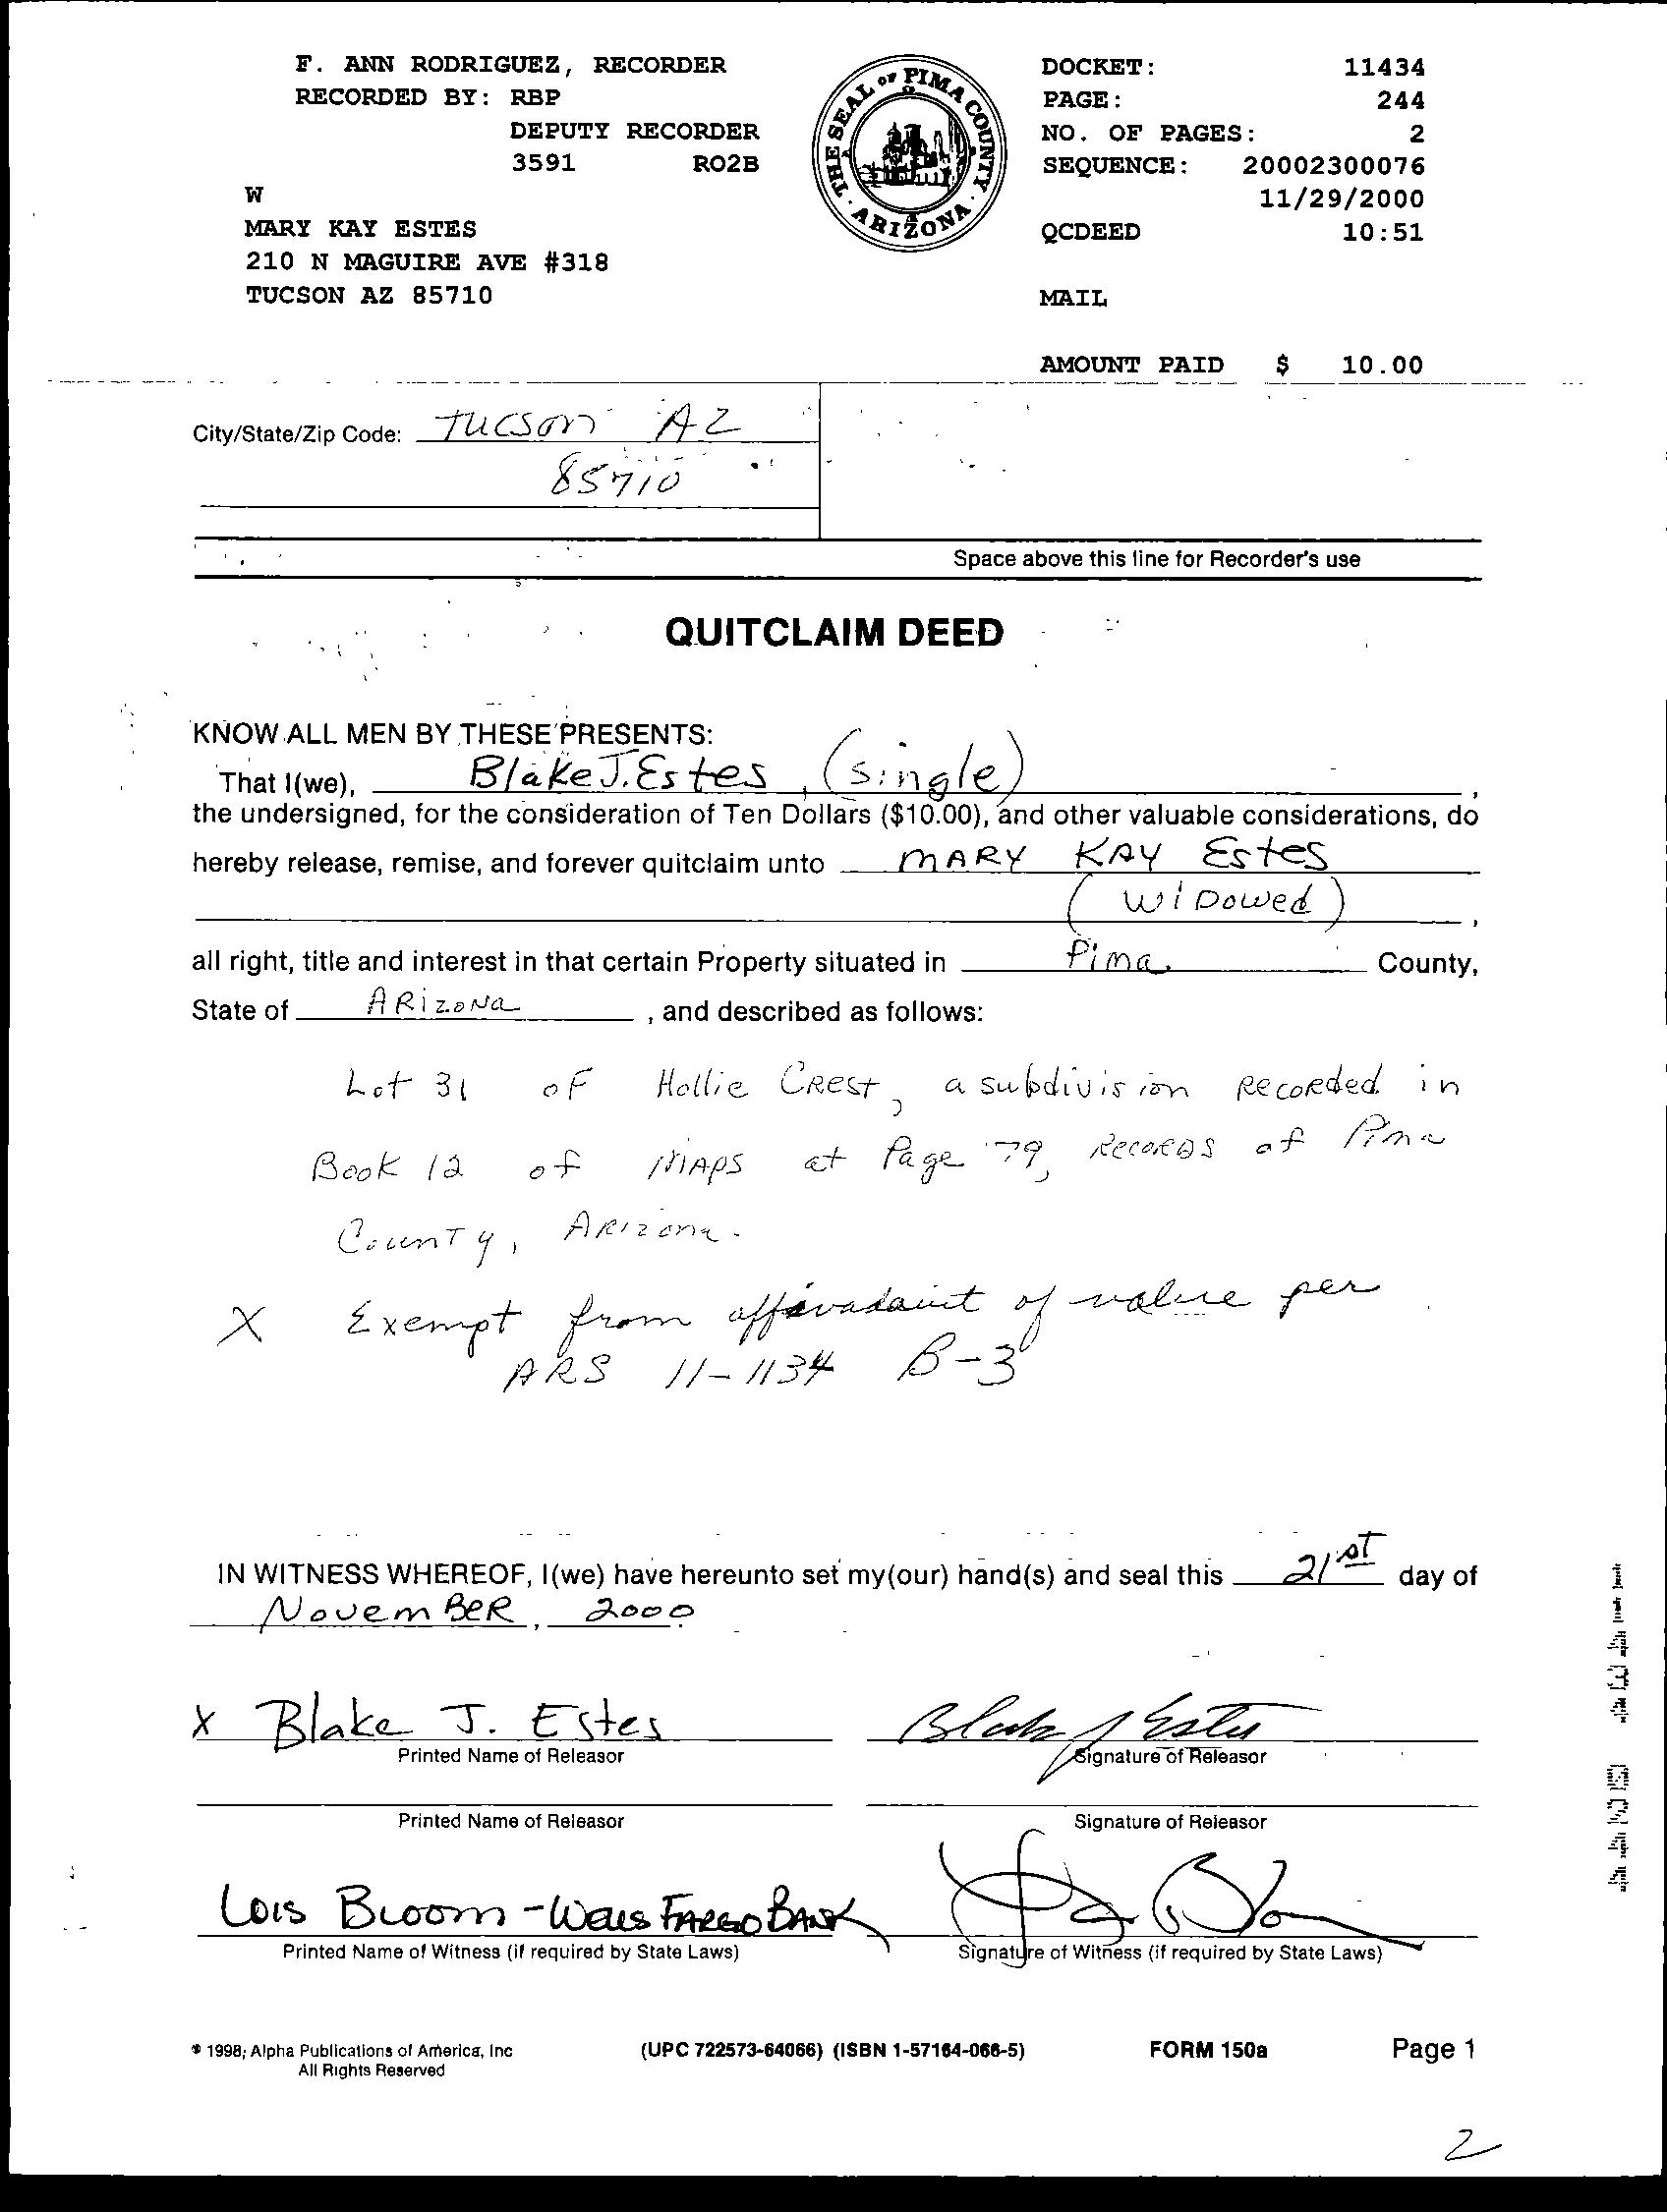 F. ANN RODRIGUEZ, RECORDER
RECORDED BY: RBP
DEPUTY RECORDER
3591 RO2B
W
MARY KAY ESTES
210 N MAGUIRE AVE #318
TUCSON AZ 85710
THE SEAL OF PIMA COUNTY · ARIZONA ·
DOCKET: 11434
PAGE: 244
NO. OF PAGES: 2
SEQUENCE: 20002300076
11/29/2000
QCDEED 10:51
MAIL
AMOUNT PAID $ 10.00
City/State/Zip Code: Tucson AZ
85710
Space above this line for Recorder's use
QUITCLAIM DEED
KNOW ALL MEN BY THESE PRESENTS:
That I(we), Blake J. Estes, (single),
the undersigned, for the consideration of Ten Dollars ($10.00), and other valuable considerations, do
hereby release, remise, and forever quitclaim unto MARY KAY Estes
(WiDowed),
all right, title and interest in that certain Property situated in Pima County,
State of ARizoNa, and described as follows:
Lot 31 of Hollie CRest, a subdivision Recorded in
Book 12 of MAPS at Page 79, Records of Pima
County, ARizona.
X Exempt from affavadavit of value per
ARS 11-1134 B-3
IN WITNESS WHEREOF, I(we) have hereunto set my(our) hand(s) and seal this 21st day of
NovemBeR, 2000.
X Blake J. Estes Blake J Estes
Printed Name of Releasor Signature of Releasor
Printed Name of Releasor Signature of Releasor
Lois Bloom - Wells Fargo Bank
Printed Name of Witness (if required by State Laws) Signature of Witness (if required by State Laws)
© 1998; Alpha Publications of America, Inc (UPC 722573-64066) (ISBN 1-57164-066-5) FORM 150a Page 1
All Rights Reserved
2